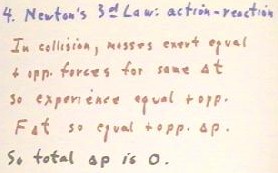 4. Newton's 3rd Law: action-reaction
In collision, masses exert equal
+ opp. forces for same Δt
so experience equal + opp.
FΔt so equal + opp. Δp.
So total Δp is 0.